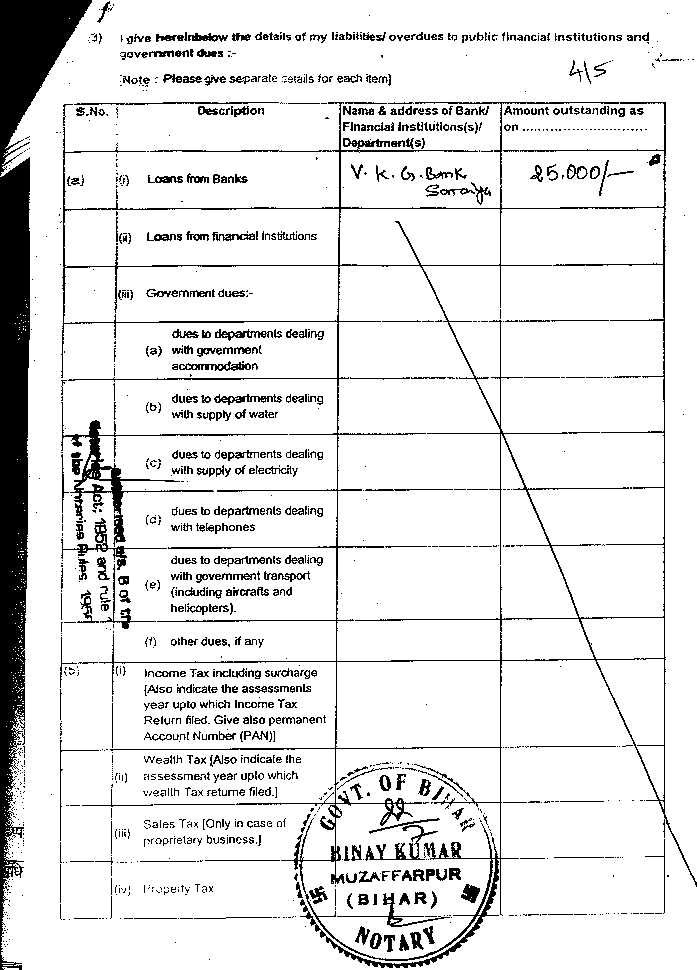 (3) I give hereinbelow the details of my liabilities/ overdues to public financial institutions and
government dues :-
4/5
[Note : Please give separate details for each item]
S.No. Description Name & address of Bank/ Financial Institutions(s)/ Department(s) Amount outstanding as on ............................
(a) (i) Loans from Banks V. K. G. Bank 25,000/-
(ii) Loans from financial institutions
(iii) Government dues:-
(a) dues to departments dealing
with government
accommodation
(b) dues to departments dealing
with supply of water
(c) dues to departments dealing
with supply of electricity
(d) dues to departments dealing
with telephones
(e) dues to departments dealing
with government transport
(including aircrafts and
helicopters).
(f) other dues, if any
(i) Income Tax including surcharge
[Also indicate the assessments
year upto which Income Tax
Return filed. Give also permanent
Account Number (PAN)]
(ii) Wealth Tax [Also indicate the
assessment year upto which
wealth Tax returne filed.]
(iii) Sales Tax [Only in case of
proprietary business.]
(iv) Property Tax
GOVT. OF BIHAR
BINAY KUMAR
MUZAFFARPUR
(BIHAR)
NOTARY
u/s. 8 of the
Act; 1952 and rule
of the Notaries Rules, 195